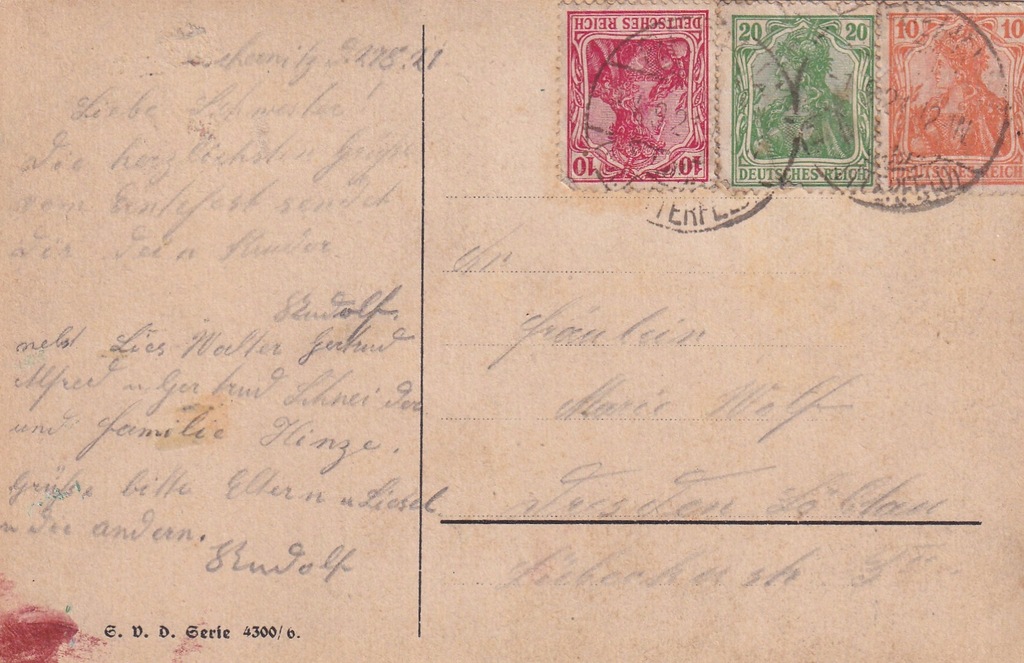 Liebe Schwester!
Die herzlichsten Grüße
vom Erntefest sendet
dir dein Bruder
Rudolf.
nebst Lies Walter Gertrud
Alfred u Gertrud Schneider
und Familie Hinze.
Grüße bitte Eltern u Liesel
u die andern.
Rudolf
S. V. D. Serie 4300/6.
DEUTSCHES REICH
10 10
20 20
DEUTSCHES REICH
10 10
DEUTSCHES REICH
TERFELD
An
Fräulein
Marie Wolf
Dresden Löbtau